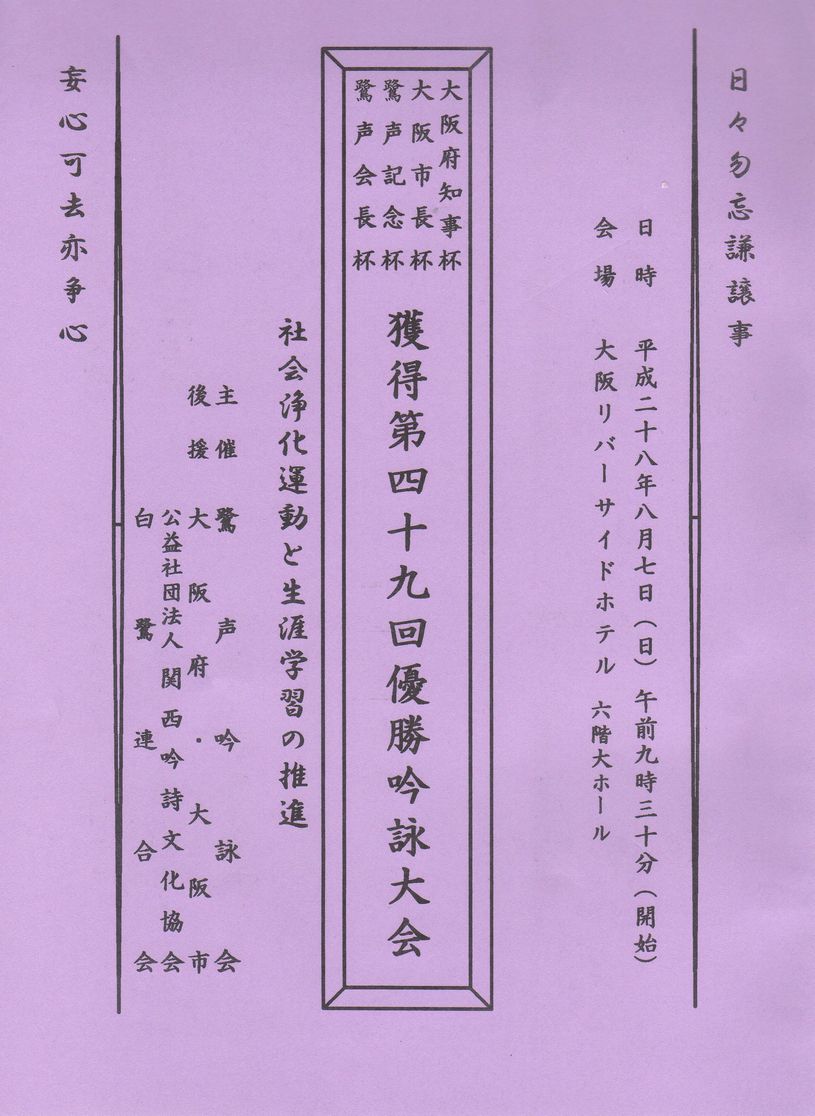 日々勿忘謙譲事
日時 平成二十八年八月七日(日)午前九時三十分(開始)
会場 大阪リバーサイドホテル 六階大ホール
大阪府知事杯
大阪市長杯
鷺声記念杯
鷺声会長杯
獲得第四十九回優勝吟詠大会
社会浄化運動と生涯学習の推進
主催 鷺声吟詠会
後援 大阪府・大阪市
公益社団法人関西吟詩文化協会
白鷺連合会
妄心可去亦争心